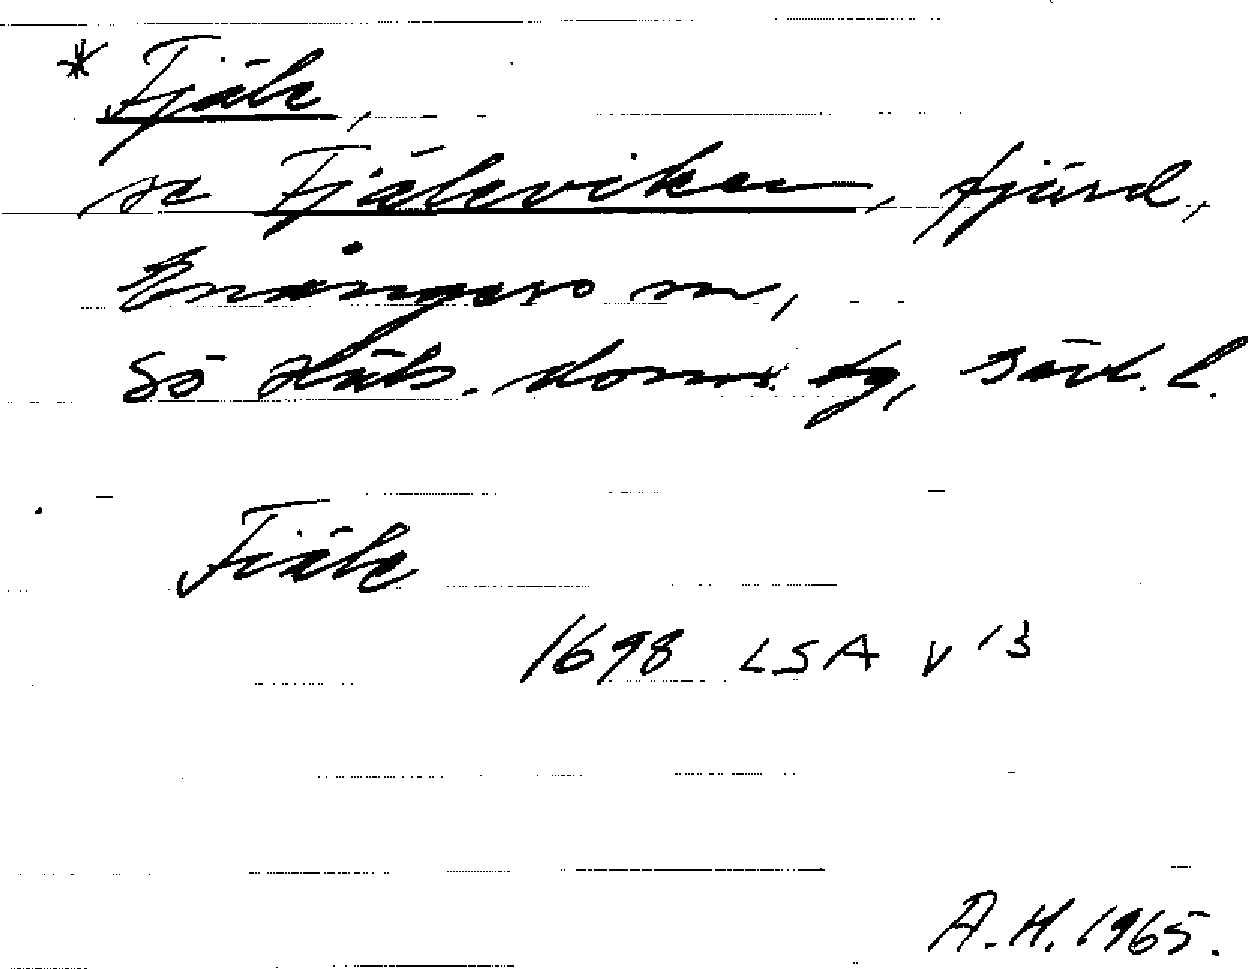 * Fjäle,
se Fjäleviken, fjärd,
Enångers sn,
Sö Häls. doms. tg, Gävl. l.
Fiäle
1698 LSA V 13
A.H. 1965.